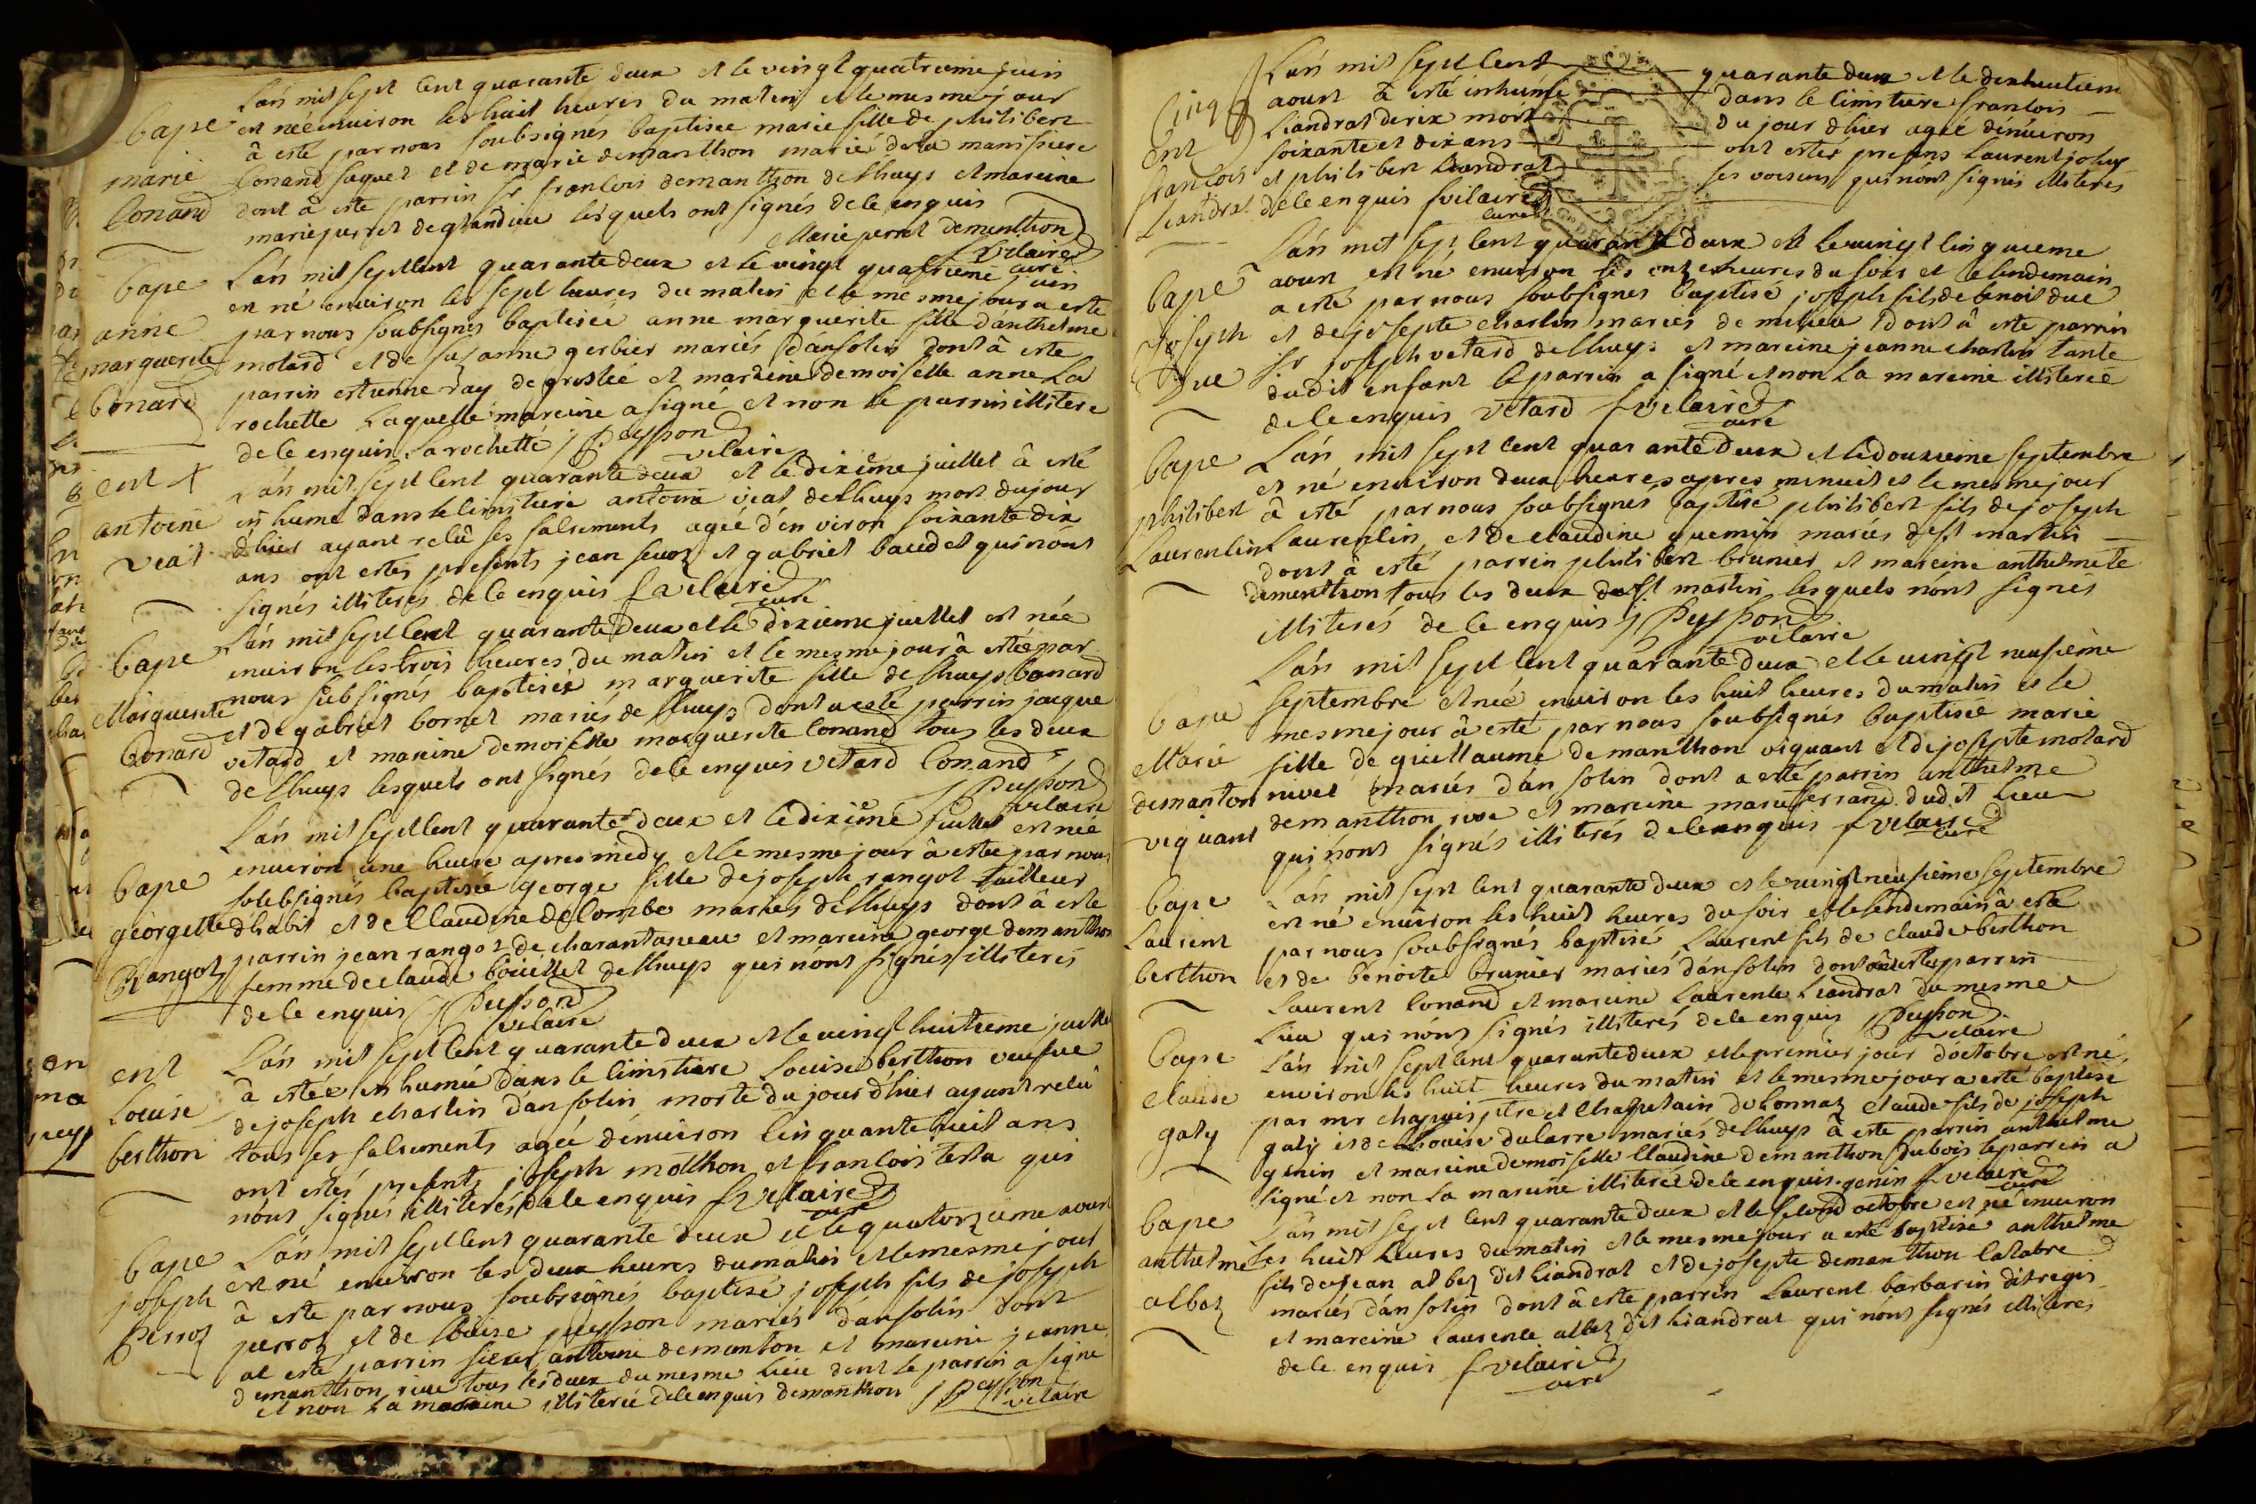 Bape
marie
Conand
L'an mil sept cent quarante deux et le vingt quatrieme juin
est née environ les huit heures du matin et le mesme jour
à esté par nous soubsignés baptisee marie fille de philibert
Conand et de marie demanthon mariés de la
dont à esté parrin sr francois demanthon de Lhuys et mareine
marie perret de glandieu lesquels ont signés de ce enquis
Marie perret dementhon
f vilaire
curé
Bape
anne
marguerite
L'an mil sept cent quarante deux et le vingt quatrieme juin
est né environ les sept heures du matin et le mesme jour a esté
par nous soubsignés baptisée anne marguerite fille d'anthelme
molard et de susanne gerbier mariés d'ansolin dont à esté
parrin estienne ray de groslée et mareine demoiselle anne La
rochette Laquelle mareine a signé et non le parrin illiteré
de ce enquis Larochette j Peysson
vilaire
ent
antoine
veat
L'an mil sept cent quarante deux et le dixième juillet à esté
inhumé dans le cimitiere antoine veat de Lhuys mort du jour
d'hier ayant reçû ses sacrements ageé d'environ soixante dix
ans ont estés presents jean et gabriel baudet qui n'ont
signés illiterés de ce enquis f vilaire
curé
Bape
Marguerite
Conard
L'an mil sept cent quarante deux et le dixieme juillet est née
environ les trois heures du matin et le mesme jour à esté par
nous subsignés baptisée marguerite fille de Conard
et de gabriel bornet mariés de Lhuys dont a esté parrin jacque
vetard et mareine demoiselle marguerite Conand tous les deux
de Lhuys lesquels ont signés de ce enquis vetard Conand
j Peysson
vilaire
Bape
georgette
Rangoz
L'an mil sept cent quarante deux et le dixiême juillet est née
environ une heure apres midy et le mesme jour à esteé par nous
soubsignés baptisée george fille de joseph rangot tailleur
d'habit et de Claudine de Combe mariés de Lhuys dont à esté
parrin jean rangoz de charantaneau et mareine george demanthon
femme de claude de Lhuys qui n'ont signés illiterés
de ce enquis j Peysson
vilaire
ent
Louise
berthon
L'an mil sept cent quarante deux et le vingt huitieme juillet
à esteé inhumée dans le cimitiere Louise berthon veufve
de joseph charlin d'ansolin morte du jour d'hier ayant reçû
tous ses sacrements ageé d'environ cinquante huit ans
ont estés presents joseph molthon et francois testa qui
n'ont signés illiterés de ce enquis f vilaire
curé
Bape
joseph
Perroz
L'an mil sept cent quarante deux et le quatorzieme aoust
est né environ les deux heures du matin et le mesme jour
à esté par nous soubsignés baptisé joseph fils de joseph
perroz et de Louise peysson mariés d'ansolin dont
at esté parrin sieur antoine demanton et mareine jeanne
demanthon rive tous les deux du mesme Lieu dont le parrin a signé
et non La mareine illiterée de ce enquis demanthon j Peysson
vilaire
Cinq
Ent
francois
Liandrat
L'an mil sept cent quarante deux et le dixhuitieme
aoust à esté inhumé dans le cimitiere francois
Liandrat de rix mort du jour d'hier ageé d'environ
soixante et dix ans ont estés presens Laurent joly
et philibert Liandrat ses voisins qui n'ont signés illiterés
de ce enquis f vilaire
curé
Bape
Joseph
Due
L'an mil sept cent quarante deux et le vingt cinquieme
aoust est né environ les onze heures du soir et le lendemain
a esté par nous soubsignés baptisé joseph fils de benoit due
et de josepte charlin mariés de milieu dont à esté parrin
sr joseph vetard de Lhuys et mareine jeanne charlin tante
dudit enfant le parrin a signé et non La mareine illiterée
de ce enquis vetard f vilaire
curé
Bape
philibert
Laurenlin
L'an mil sept cent quarante deux et le douzieme septembre
est né environ deux heures apres minuit et le mesme jour
à esté par nous soubsignés baptisé philibert fils de joseph
Laurenlin et de claudine quemin mariés de st martin
dont à esté parrin philibert brunier et mareine anthelmete
dementhon tous les deux de st martin lesquels n'ont signés
illiterés de ce enquis j Peysson
vilaire
Bape
Marie
demanton
viquant
L'an mil sept cent quarante deux et le vingt neufieme
septembre et née environ les huit heures du matin et le
mesme jour à esté par nous soubsignés baptisée marie
fille de guillaume demanthon viquant et de josepte molard
nivet mariés d'ansolin dont a esté parrin anthelme
demanthon rive et mareine marie ferrand dudit Lieu
qui n'ont signés illiterés de ce enquis f vilaire
curé
Bape
Laurent
berthon
L'an mil sept cent quarante deux et le vingt neufieme septembre
est né environ les huit heures du soir et le lendemain à esté
par nous soubsignés baptisé Laurent fils de claude berthon
et de benoite brunier mariés d'ansolin dont à esté parrin
Laurent Conand et mareine Laurence Liandrat du mesme
Lieu qui n'ont signés illiterés de ce enquis j Peysson
vilaire
Bape
Claude
galy
L'an mil sept cent quarante deux et le premier jour d'octobre est né
environ les huit heures du matin et le mesme jour a esté baptisé
par mr chapuis ptre et Chapelain de Lonnaz Claude fils de joseph
galy et de Louise dularre mariés de Lhuys à esté parrin anthelme
genin et mareine demoiselle Claudine demanthon dubois le parrin a
signé et non La mareine illiterée de ce enquis genin f vilaire
curé
Bape
anthelme
alboz
L'an mil sept cent quarante deux et le second octobre est né environ
les huit heures du matin et le mesme jour a esté baptisé anthelme
fils de jean albez dit Liandrat et de josepte demanthon calabre
mariés d'ansolin dont à esté parrin Laurent barbarin dit regis
et mareine Laurence albez dit Liandrat qui n'ont signés illiterés
de ce enquis f vilaire
curé